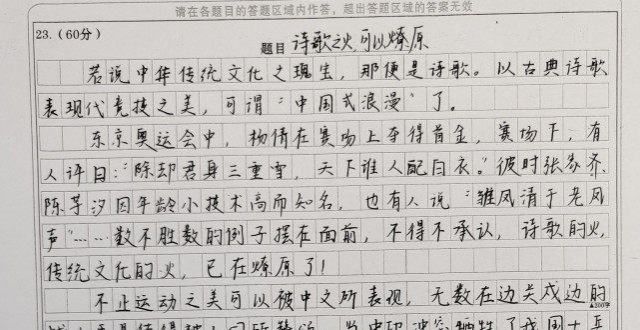 请在各题目的答题区域内作答，超出答题区域的答案无效
23.（60分）
题目 诗歌之火 可以燎原
若说中华传统文化之瑰宝，那便是诗歌。以古典诗歌
表现代竞技之美，可谓“中国式浪漫”了。
东京奥运会中，杨倩在赛场上夺得首金，赛场下，有
人评曰：“除却君身三重雪，天下谁人配白衣。”彼时张家齐、
陈芋汐因年龄小技术高而知名，也有人说“雏凤清于老凤
声”……数不胜数的例子摆在面前，不得不承认，诗歌的火，
传统文化的火，已在燎原了！
▲200字
不止运动之美可以被中文所表现，无数在边关戍边的